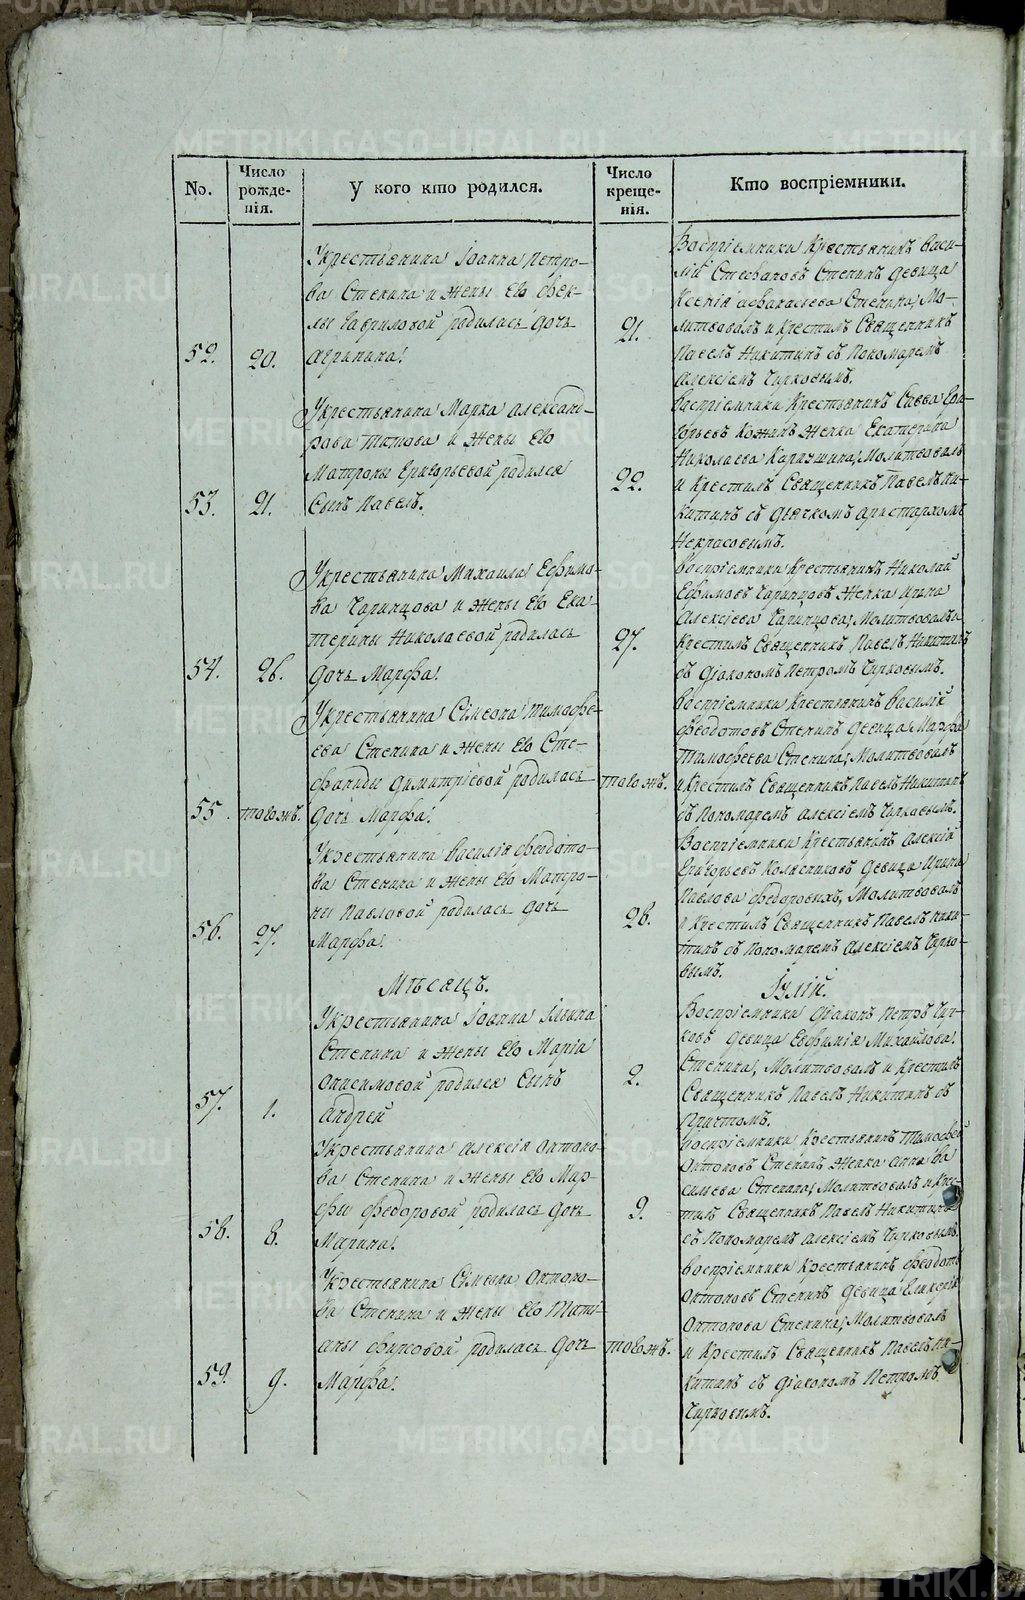 No.
Число рожде-нія.
У кого кто родился.
Число креще-нія.
Кто воспріемники.
52.
20.
Укрестьянина Іоанна Петро-
ва Стенина и жены Его Фек-
лы Гавриловой родилась дочь
Агрипина.
21.
Воспріемники Крестьянинъ Васи-
лій Стефановъ Стенинъ девица
Ксенія Афанасьева Стенина, Мо-
литвовалъ и крестилъ Священникъ
Павелъ Никитинъ съ Пономаремъ
Алексіемъ Чирковымъ.
53.
21.
Укрестьянина Марка Александ-
рова Титова и жены Его
Матроны Григорьевой родился
Сынъ Павелъ.
22.
Воспріемники Крестьянинъ Савва Гри-
горьевъ женка Екатерина
Николаева Молитвовалъ
и Крестилъ Священникъ Павелъ Ни-
китинъ съ дьячкомъ Аристархомъ
Некрасовымъ.
54.
26.
Укрестьянина Михаила Ефимо-
ва Чаринцова и жены Его Ека-
терины Николаевой родилась
дочь Марфа.
27.
Воспріемники Крестьянинъ Николай
Ефимовъ Чаринцовъ женка Ирина
Алексіева Чаринцова, Молитвовалъ и
Крестилъ Священникъ Павелъ Никитинъ
съ діакономъ Петромъ Чирковымъ.
55.
тогожъ.
Укрестьянина Сімеона Тимофе-
ева Стенина и жены Его Сте-
фаниды Димитріевой родилась
дочь Марфа.
тогожъ.
Воспріемники Крестьянинъ Василій
Феодотовъ Стенинъ девица Марфа
Тимофеева Стенина, Молитвовалъ
и Крестилъ Священникъ Павелъ Никитинъ
съ Пономаремъ Алексіемъ Чирковымъ.
56.
27.
Укрестьянина Василія Феодото-
ва Стенина и жены Его Матро-
ны Павловой родилась дочь
Марфа.
28.
Воспріемники Крестьянинъ Алексій
Григорьевъ Колясниковъ девица Ирина
Павлова Федоровыхъ, Молитвовалъ
и Крестилъ Священникъ Павелъ Ники-
тинъ съ Пономаремъ Алексіемъ Чирко-
вымъ.
Мѣсяцъ.
Іулій.
57.
1.
Укрестьянина Іоанна Ильина
Стенина и жены Его Марія
Онисимовой родился Сынъ
Андрей
2.
Воспріемники діаконъ Петръ Чир-
ковъ девица Евфимія Михайлова
Стенина, Молитвовалъ и Крестилъ
Священникъ Павелъ Никитинъ съ
Причтомъ.
58.
8.
Укрестьянина Алексія Антоно-
ва Стенина и жены Его Мар-
фы Федоровой родилась дочь
Марина.
9.
Воспріемники Крестьянинъ Тимофей
Антоновъ Стенинъ женка Анна Ва
сильева Стенина, Молитвовалъ и Крес-
тилъ Священникъ Павелъ Никитинъ
съ Пономаремъ Алексіемъ Чирковымъ.
59.
9.
Укрестьянина Сімеона Антоно-
ва Стенина и жены Его Тать-
аны Фирсовой родилась дочь
Марфа.
тогожъ.
Воспріемники Крестьянинъ Феодотъ
Антоновъ Стенинъ девица Гликерія
Антонова Стенина, Молитвовалъ
и Крестилъ Священникъ Павелъ Ни-
китинъ съ діакономъ Петромъ
Чирковымъ.
METRIKI.GASO-URAL.RU